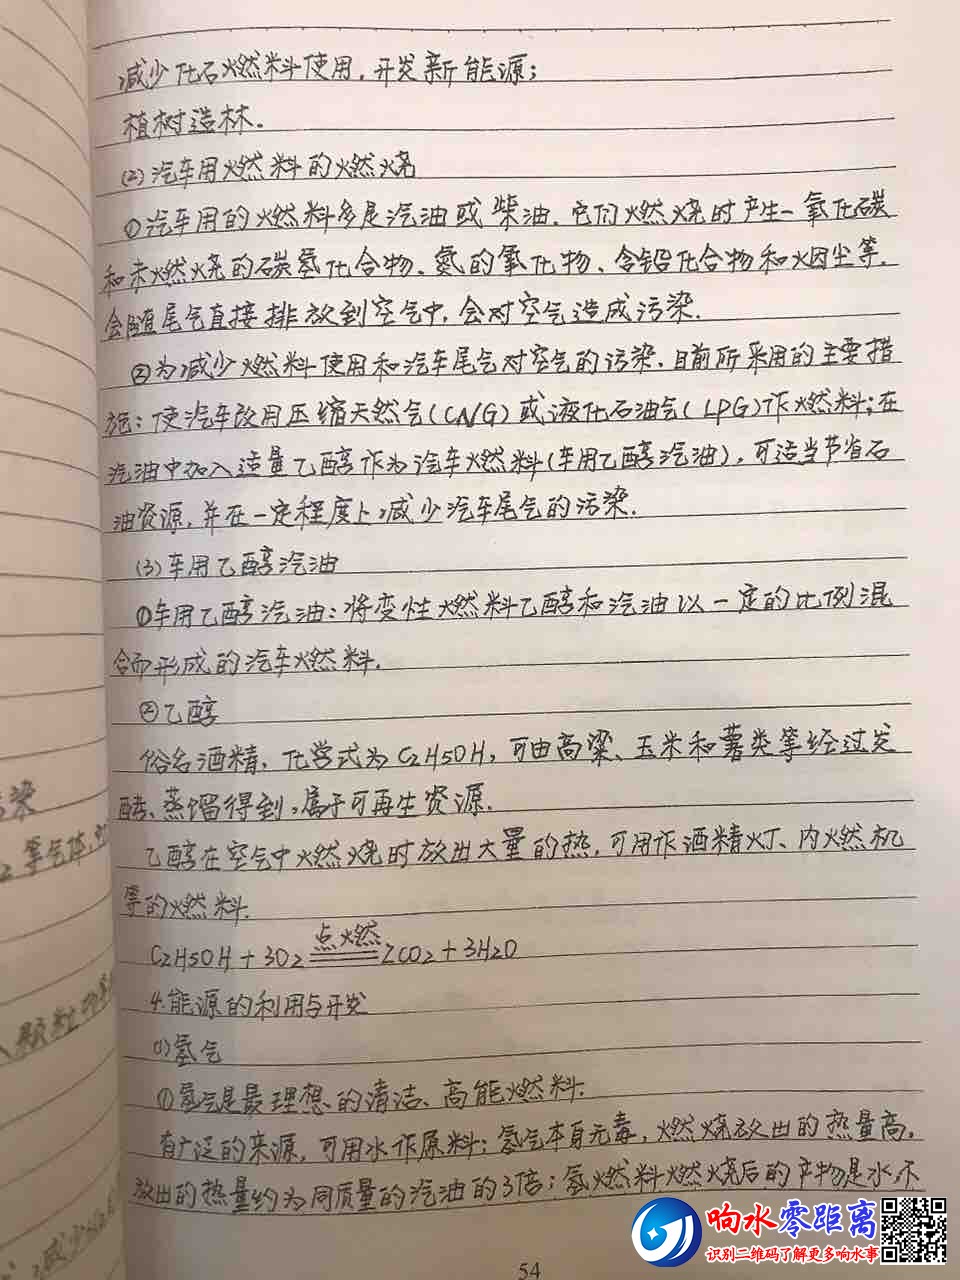 减少化石燃料使用,开发新能源;
植树造林.
(2)汽车用燃料的燃烧
①汽车用的燃料多是汽油或柴油.它们燃烧时产生一氧化碳
和未燃烧的碳氢化合物、氮的氧化物、含铅化合物和烟尘等.
会随尾气直接排放到空气中,会对空气造成污染.
②为减少燃料使用和汽车尾气对空气的污染,目前所采用的主要措
施:使汽车改用压缩天然气(CNG)或液化石油气(LPG)作燃料;在
汽油中加入适量乙醇作为汽车燃料(车用乙醇汽油),可适当节省石
油资源,并在一定程度上减少汽车尾气的污染.
(3)车用乙醇汽油
①车用乙醇汽油:将变性燃料乙醇和汽油以一定的比例混
合而形成的汽车燃料.
②乙醇
俗名酒精,化学式为C2H5OH,可由高粱、玉米和薯类等经过发
酵、蒸馏得到,属于可再生资源.
乙醇在空气中燃烧时放出大量的热,可用作酒精灯、内燃机
等的燃料.
点燃
C2H5OH+3O2═2CO2+3H2O
4.能源的利用与开发
(1)氢气
①氢气是最理想的清洁、高能燃料.
有广泛的来源,可用水作原料;氢气本身无毒,燃烧放出的热量高,
放出的热量约为同质量的汽油的3倍;氢燃料燃烧后的产物是水,不
54
染
2等气体,
颗粒物
减少
响水零距离
识别二维码了解更多响水事